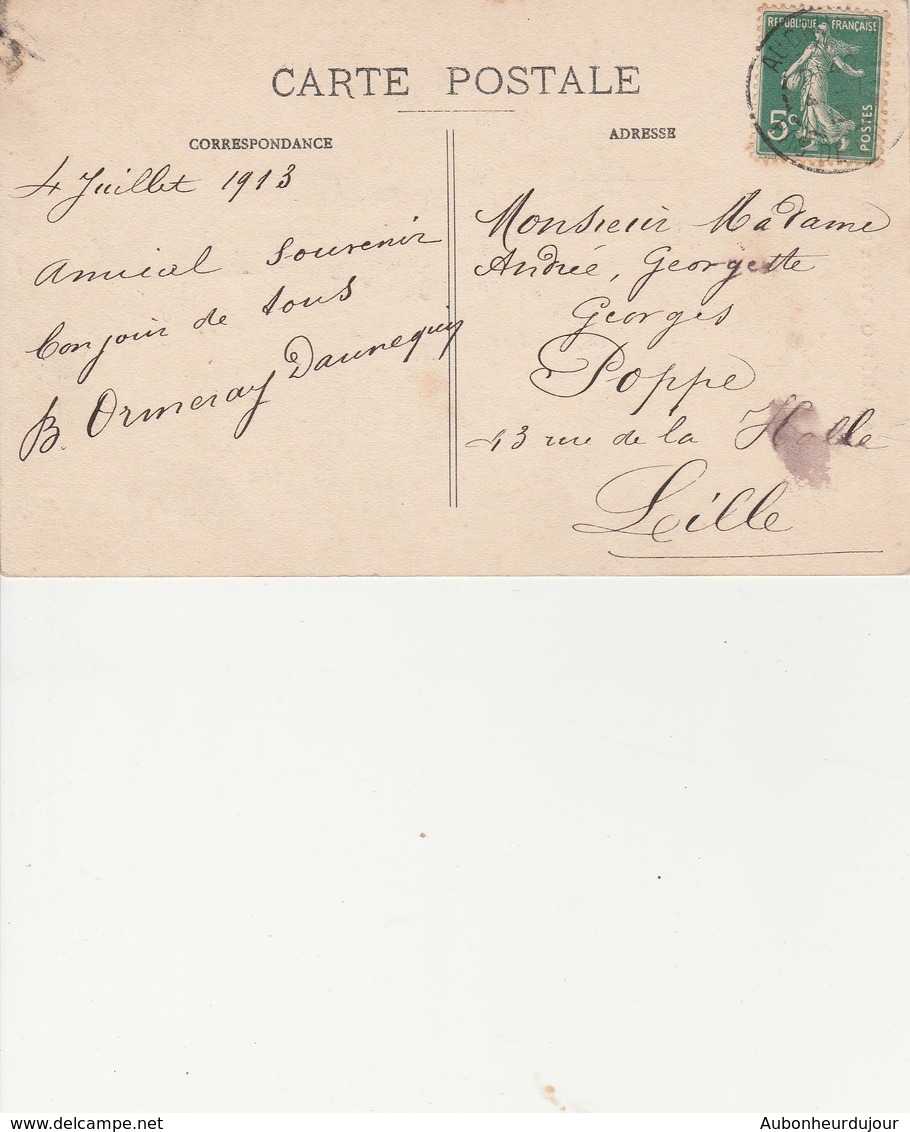 CARTE POSTALE
CORRESPONDANCE
4 Juillet 1913
Amical Souvenir
Bonjour de tous
B. Ormeray Daunequin
ADRESSE
REPUBLIQUE FRANÇAISE
5c
POSTES
Monsieur Madame
Andrée, Georgette
Georges
Poppe
43 rue de la Halle
Lille
www.delcampe.net
Aubonheurdujour